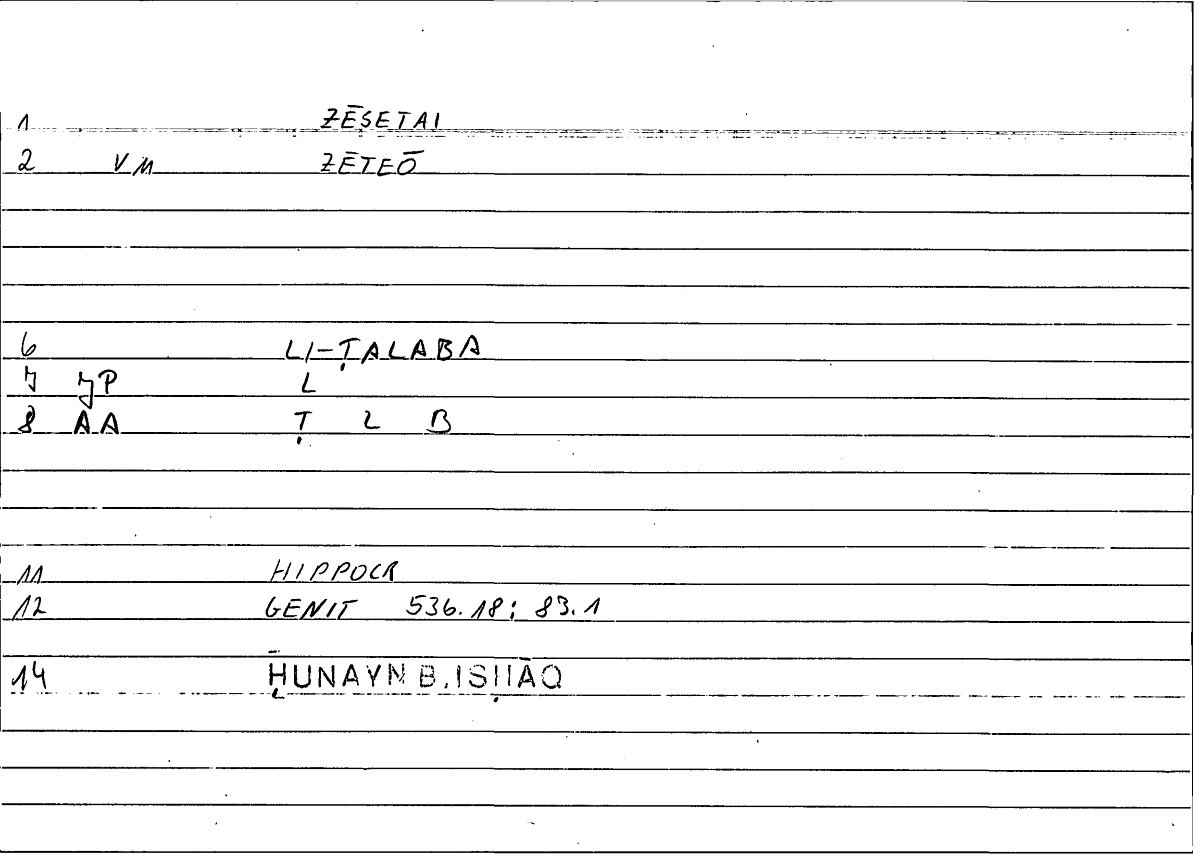 1 ZĒSETAI
2 VM ZĒTEŌ
6 LI-ṬALABA
7 JP L
8 AA Ṭ L B
11 HIPPOCR
12 GENIT 536.18; 83.1
14 ḤUNAYN B. ISḤĀQ